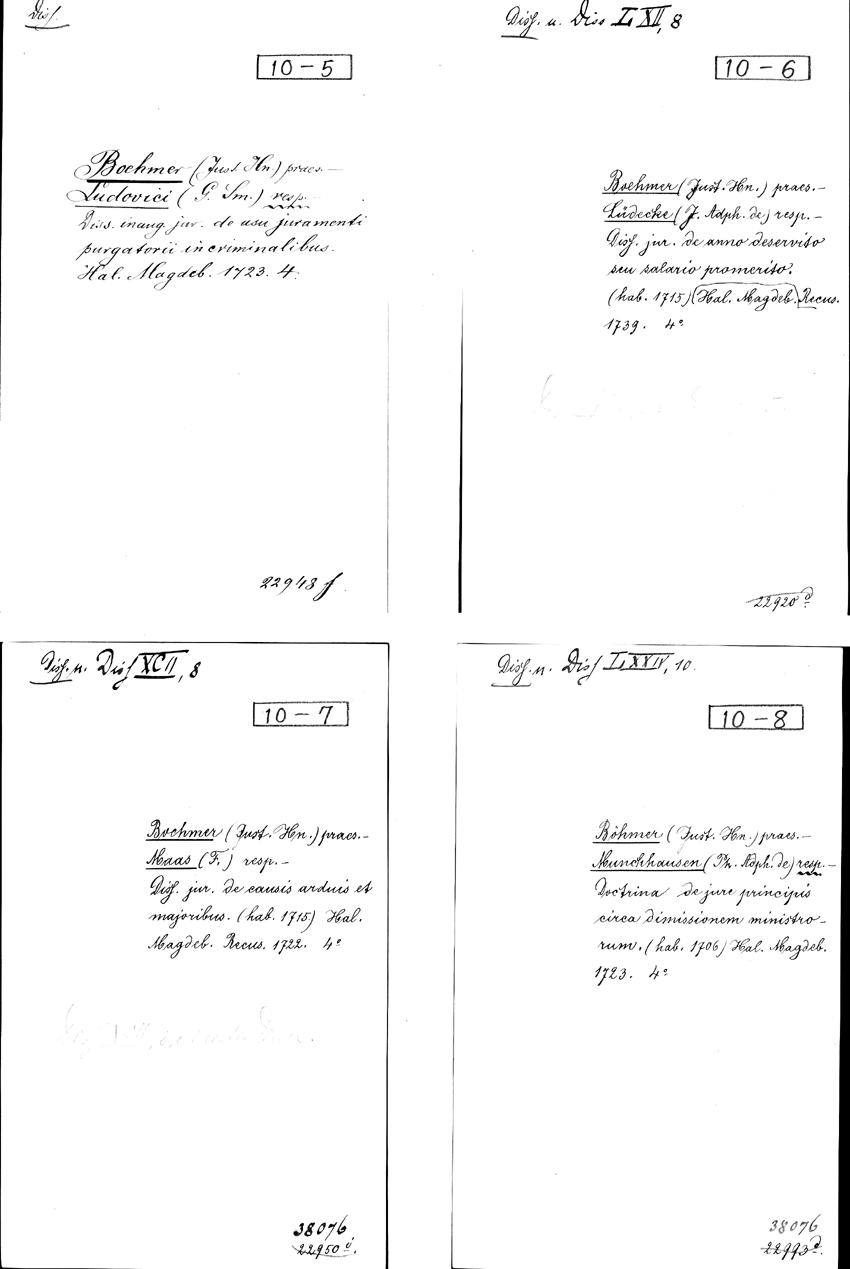 Diss.
10-5
Boehmer (Just. Hn.) praes.—
Ludovici (G. Sm.) resp.
Diss. inaug. jur. de usu juramenti
purgatorii in criminalibus.
Hal. Magdeb. 1723. 4.
22948 f
Diss. u. Diss LXII, 8
10-6
Boehmer (Just. Hn.) praes.—
Lüdecke (J. Adph. de) resp.—
Diss. jur. de anno deservito
seu salario promerito.
(hab. 1715) Hal. Magdeb. Recus.
1739. 4º
22920 d
Diss. u. Diss XCII, 8
10-7
Boehmer (Just. Hn.) praes.—
Maas (F.) resp.—
Diss. jur. de causis arduis et
majoribus. (hab. 1715) Hal.
Magdeb. Recus. 1722. 4º
38076.
22950
Diss. u. Diss LXXIV, 10.
10-8
Böhmer (Just. Hn.) praes.—
Munchhausen (Ph. Adph. de) resp.—
Doctrina de jure principis
circa dimissionem ministro-
rum. (hab. 1706) Hal. Magdeb.
1723. 4º
38076
22993 d.